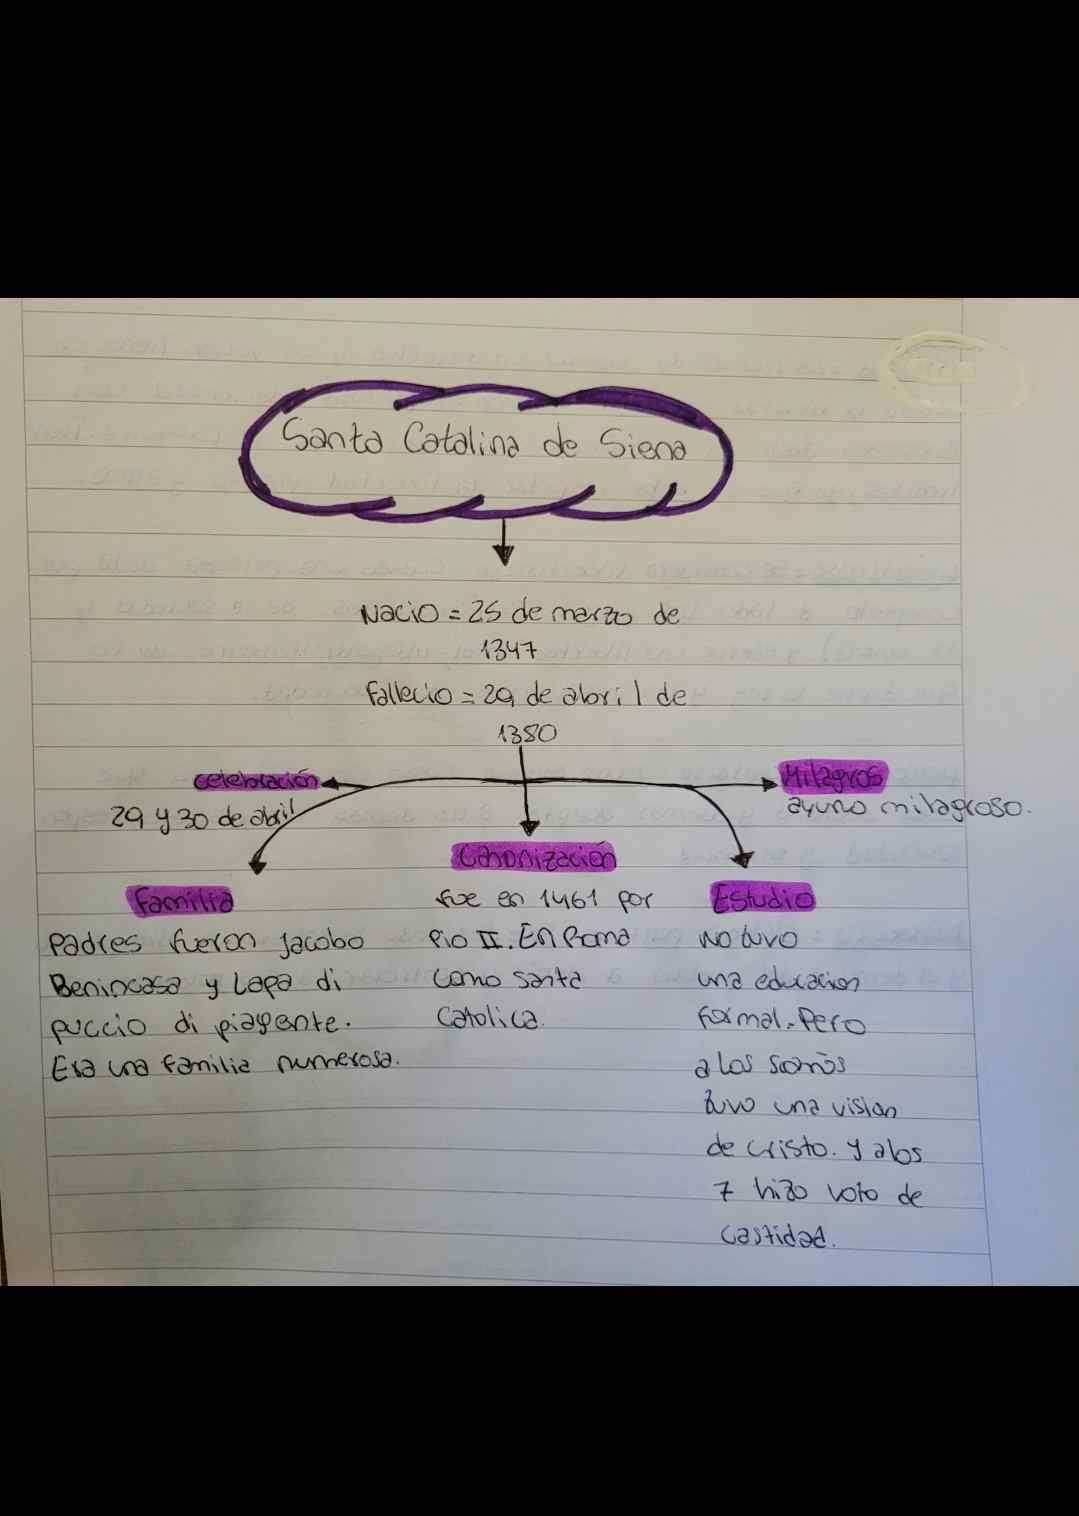 Santa Catalina de Siena
Nacio = 25 de marzo de
1347
Fallecio = 29 de abril de
1380
celebración
29 y 30 de abril
Milagros
ayuno milagroso.
Canonización
fue en 1461 por
Pio II. En Roma
como santa
Catolica.
Familia
Padres fueron Jacobo
Benincasa y Lapa di
puccio di piagente.
Era una familia numerosa.
Estudio
No tuvo
una educacion
formal. Pero
a los
tuvo una vision
de cristo. y a los
7 hizo voto de
castidad.